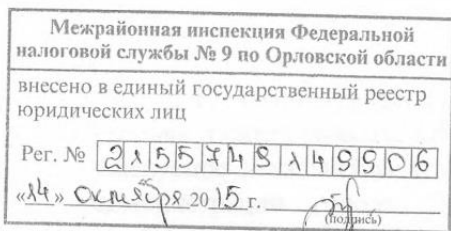 Межрайонная инспекция Федеральной
налоговой службы № 9 по Орловской области
внесено в единый государственный реестр
юридических лиц
Рег. № 2155749149906
«14» октября 2015 г.
(подпись)